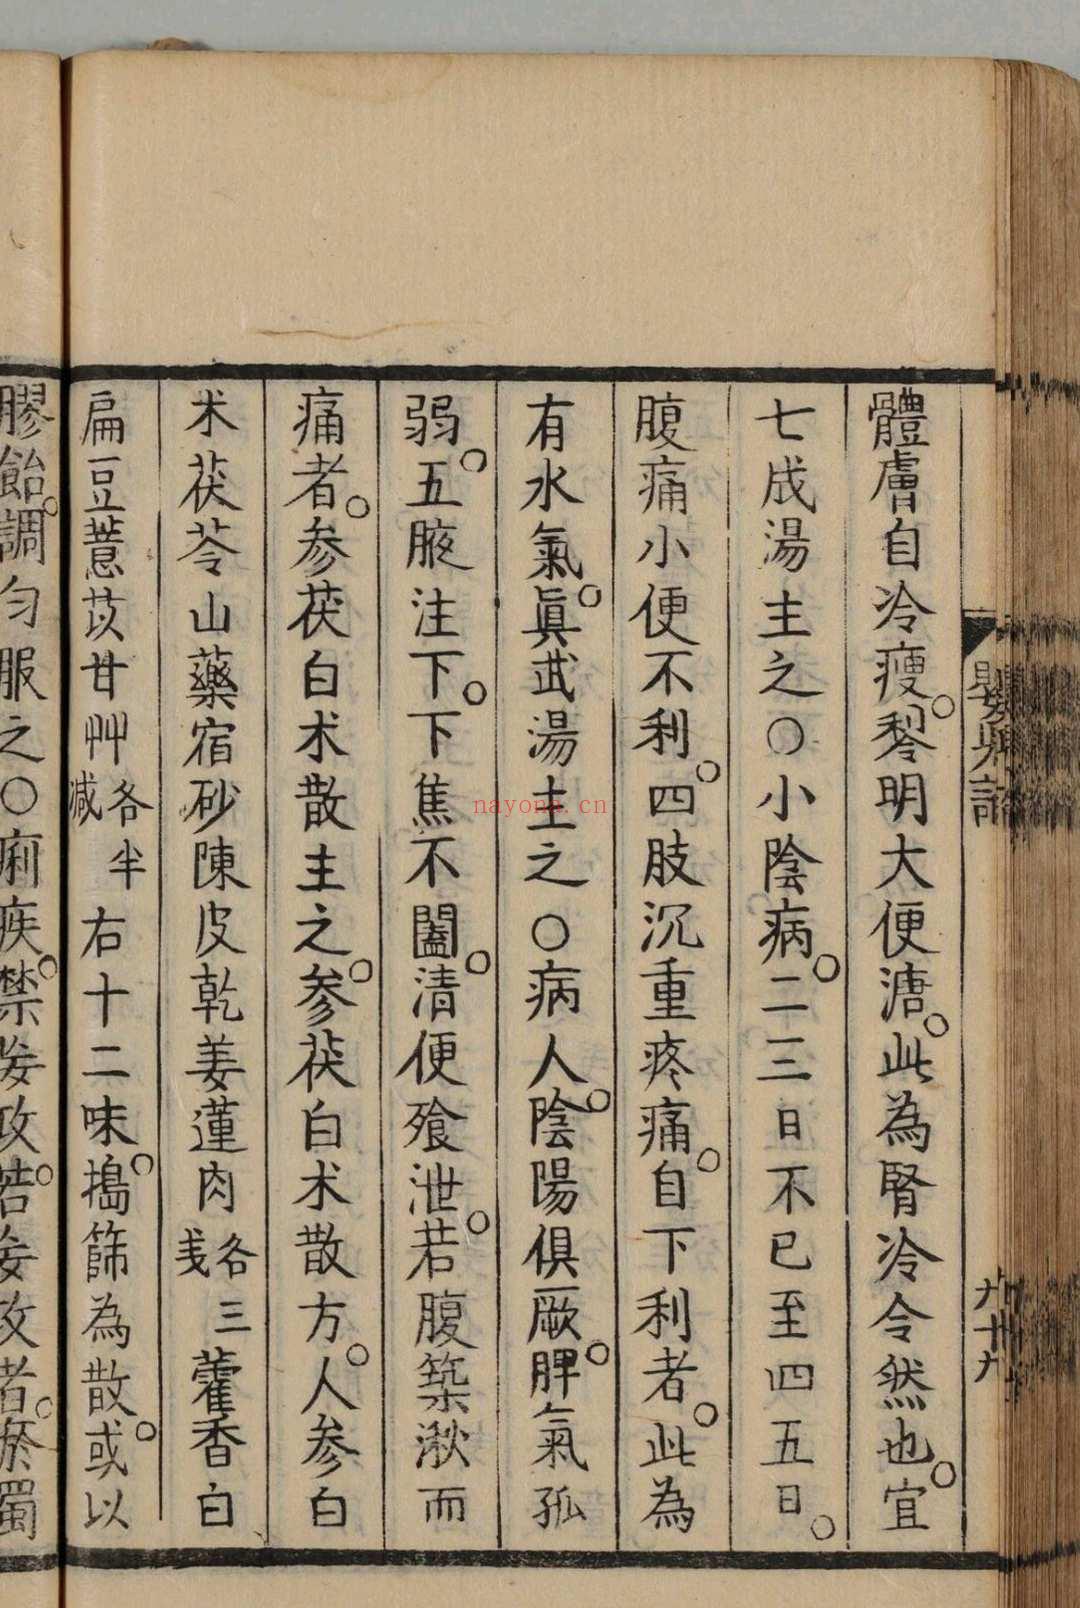 體膚自冷痩○黎明大便溏○此為腎冷令然也○宜
七成湯主之○小陰病○二三日不已至四五日○
腹痛小便不利○四肢沉重疼痛○自下利者○此為
有水氣○眞武湯主之○病人○陰陽俱厥○脾氣孤
弱○五腋注下○下焦不闔○清便飱泄○若腹築湫而
痛者○参茯白朮散主之○参茯白朮散方○人参白
朮茯苓山藥宿砂陳皮乾姜蓮肉各三戔藿香白
扁豆薏苡甘艸各半减右十二味○搗篩為散○或以
膠飴○調匀服之○痢疾○禁妄攻○若妄攻者○瘀蜀
nayona.cn